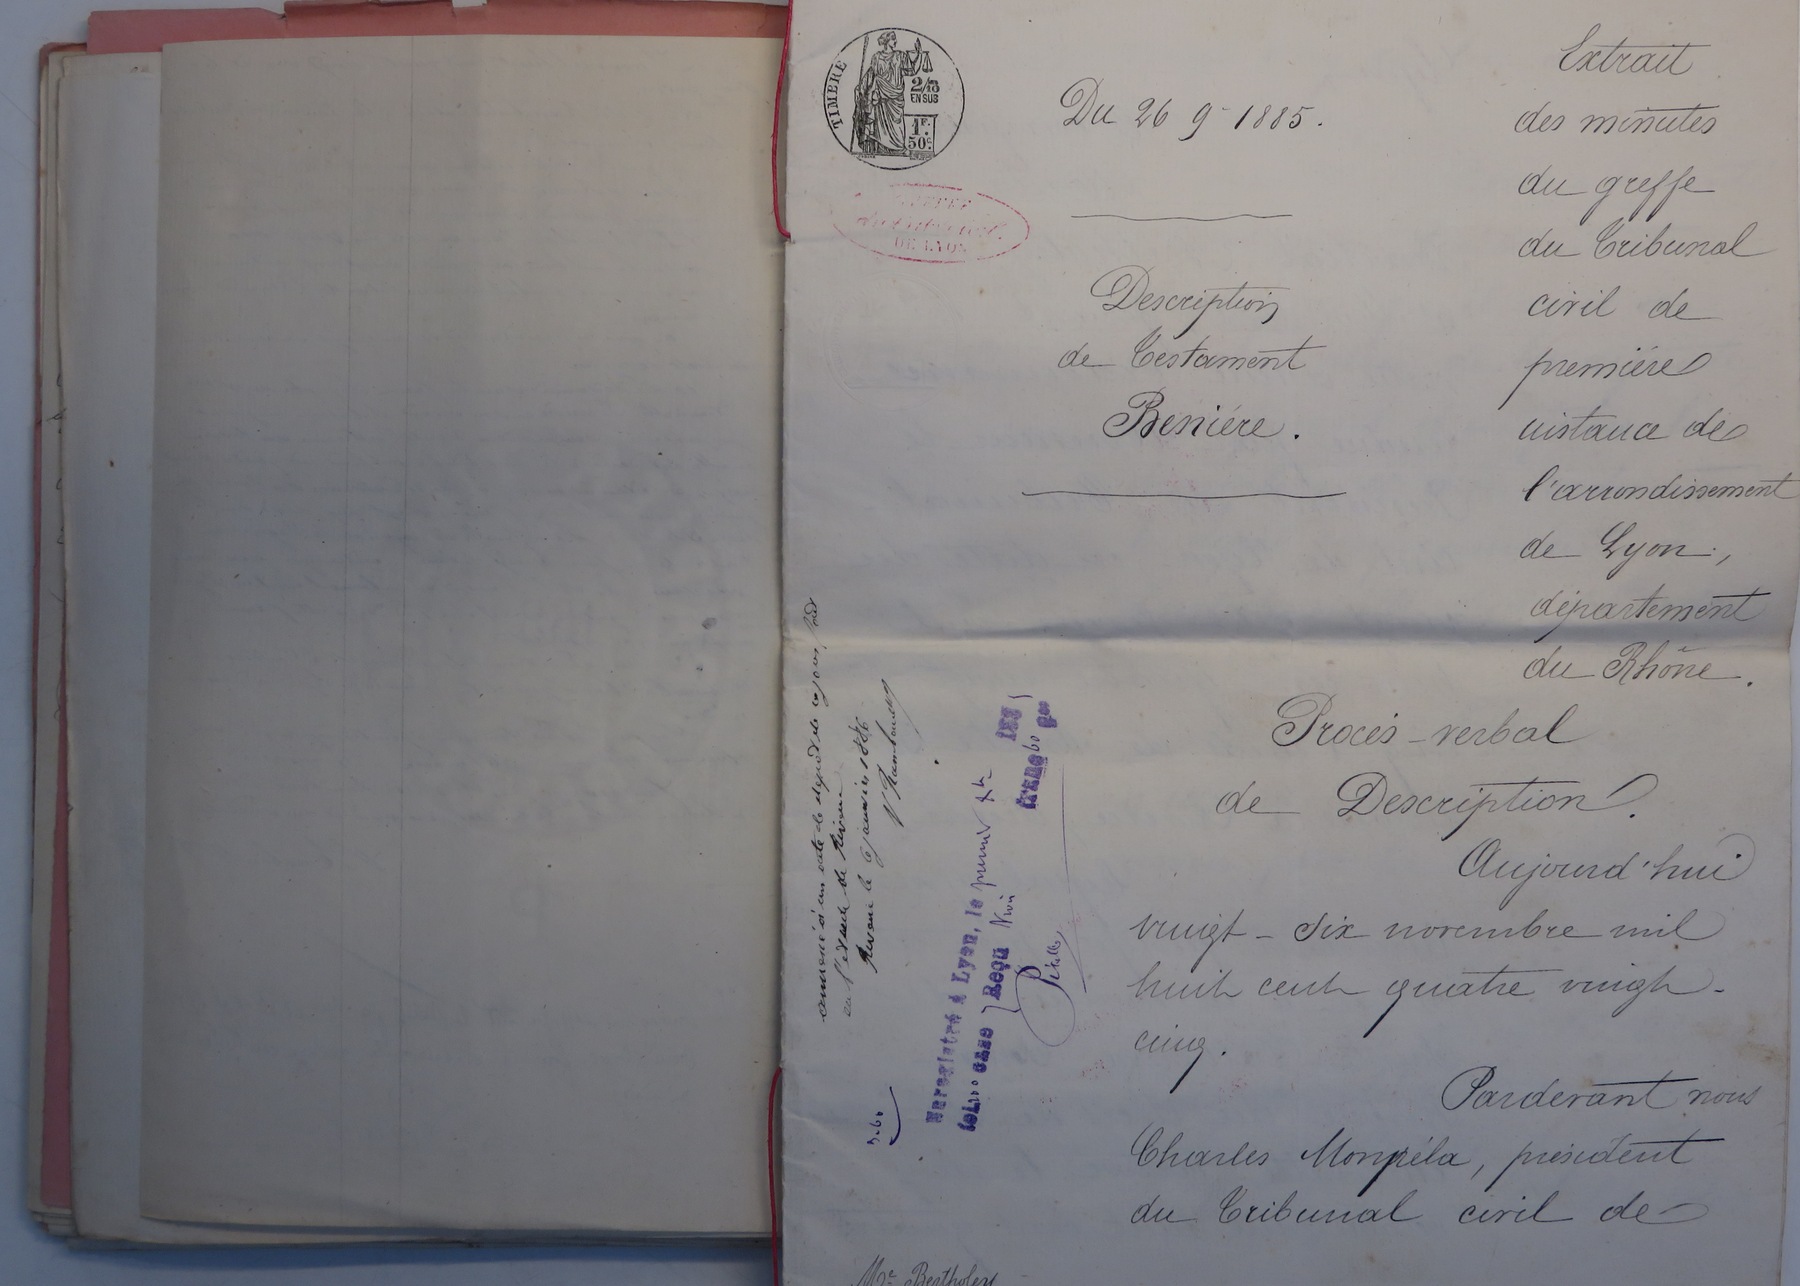 TIMBRE
2/10
EN SUS
1F.
50c.
DE LYON
Du 26 9-1885.
Description
de Testament
Benière.
Extrait
des minutes
du greffe
du Tribunal
civil de
première
instance de
l'arrondissement
de Lyon,
département
du Rhône.
Procès-verbal
de Description.
Aujourd'hui
vingt-six novembre mil
huit cent quatre vingt-
cinq.
Pardevant nous
Charles Monpéla, président
du Tribunal civil de
annexé à un acte de dépôt de ce jour,
le 6 janvier 1886
Enregistré à Lyon, le premier Xbre
Reçu
Me Bertholey